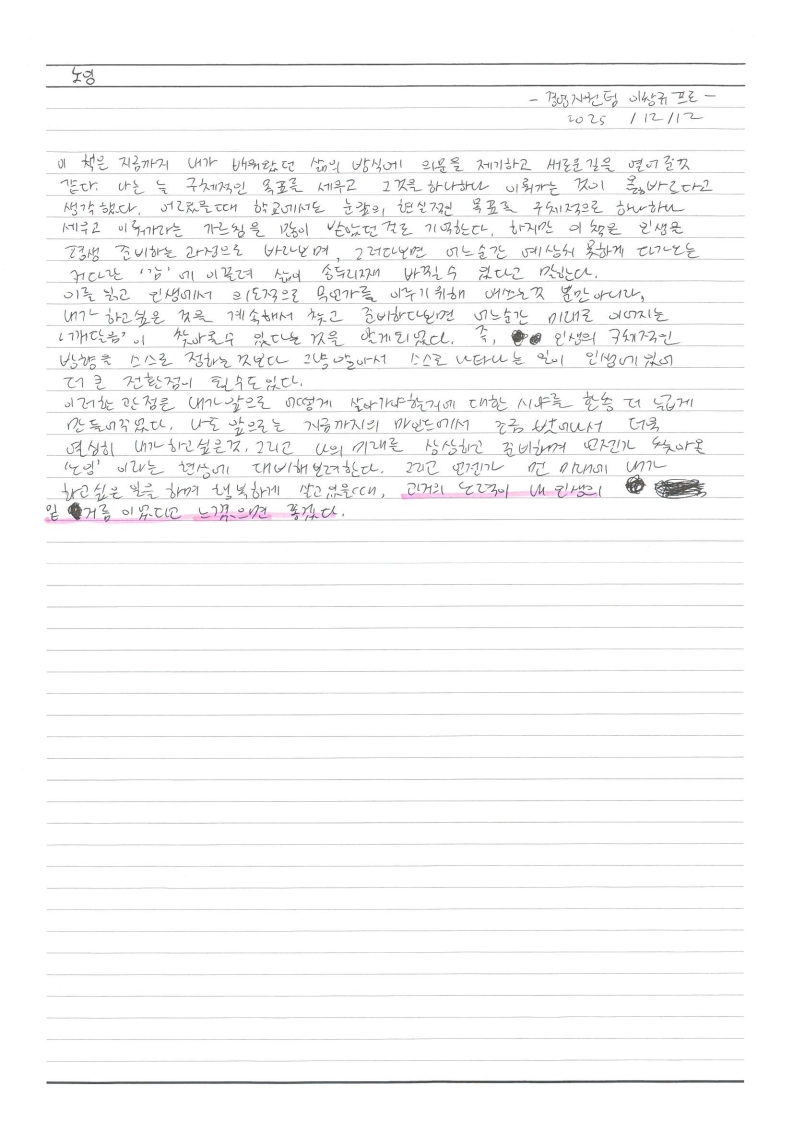 노영
- 경영지원팀 이상규 프로 -
2025 / 12 / 12
이 책은 지금까지 내가 배워왔던 삶의 방식에 의문을 제기하고 새로운길을 열어준것
같다. 나는 늘 구체적인 목표를 세우고 그것을 하나하나 이뤄가는 것이 올바르다고
생각했다. 어렸을때 학교에서도 눈앞의 현실적인 목표를 구체적으로 하나하나
세우고 이뤄가라는 가르침을 많이 받았던 것로 기억한다. 하지만 이 책은 인생은
평생 준비하는 과정으로 바라보며, 그러다보면 어느순간 예상치 못하게 다가오는
커다란 '감'에 이끌려 삶이 송두리째 바뀔수 있다고 말한다.
이를 읽고 인생에서 의도적으로 무언가를 이루기위해 애쓰는것 뿐만아니라,
내가 하고싶은 것을 계속해서 찾고 준비하다보면 어느순간 미래로 이어지는
'깨달음'이 찾아올수 있다는 것을 알게되었다. 즉, 인생의 구체적인
방향을 스스로 정하는것보다 그냥 알아서 스스로 나타나는 일이 인생에있어
더 큰 전환점이 될수도있다.
이러한 관점은 내가앞으로 어떻게 살아가야할지에 대한 시야를 한층 더 넓게
만들어주었다. 나도 앞으로는 지금까지의 마인드에서 조금 벗어나서 더욱
열심히 내가하고싶은것, 그리고 나의 미래를 상상하고 준비하며 언젠가 찾아올
'노영' 이라는 현상에 대비해보려한다. 그리고 언젠가 먼 미래에 내가
하고싶은 일을 하며 행복하게 살고있을때, 과거의 노력이 내 인생의
밑거름 이었다고 느꼈으면 좋겠다.